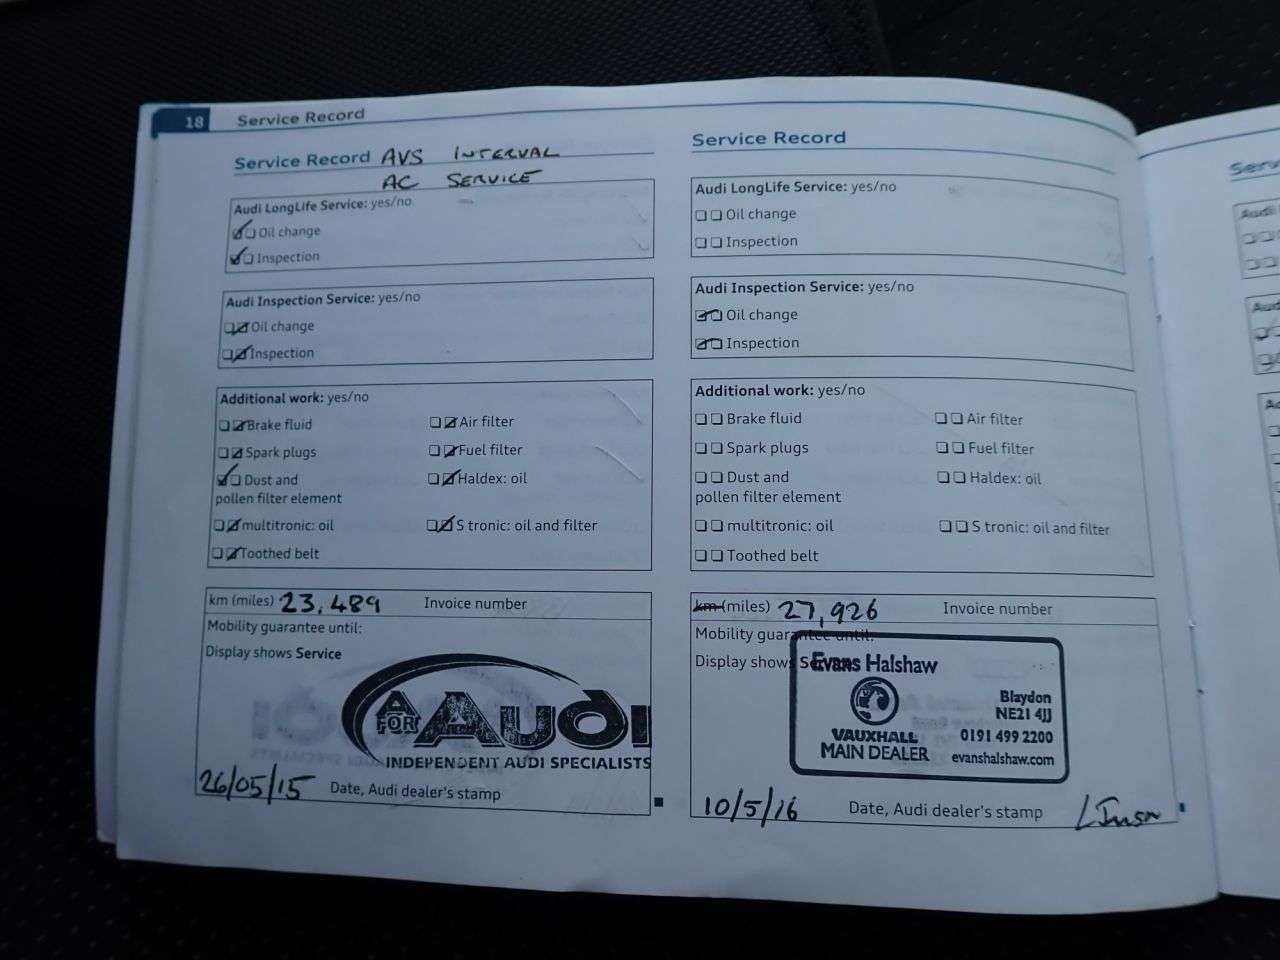 18 Service Record
Service Record AVS INTERVAL
AC SERVICE
Audi LongLife Service: yes/no
Oil change
Inspection
Audi Inspection Service: yes/no
Oil change
Inspection
Additional work: yes/no
Brake fluid Air filter
Spark plugs Fuel filter
Dust and Haldex: oil
pollen filter element
multitronic: oil S tronic: oil and filter
Toothed belt
km (miles) 23,489 Invoice number
Mobility guarantee until:
Display shows Service
A FOR AUDI
INDEPENDENT AUDI SPECIALISTS
26/05/15 Date, Audi dealer's stamp
Service Record
Audi LongLife Service: yes/no
Oil change
Inspection
Audi Inspection Service: yes/no
Oil change
Inspection
Additional work: yes/no
Brake fluid Air filter
Spark plugs Fuel filter
Dust and Haldex: oil
pollen filter element
multitronic: oil S tronic: oil and filter
Toothed belt
km (miles) 27,926 Invoice number
Mobility guarantee until:
Display shows Service
Evans Halshaw
Blaydon
NE21 4JJ
VAUXHALL 0191 499 2200
MAIN DEALER evanshalshaw.com
10/5/16 Date, Audi dealer's stamp